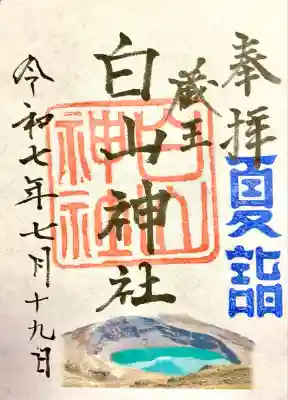 奉拝
夏詣
蔵王
白山神社
白山
神社
令和七年七月十九日